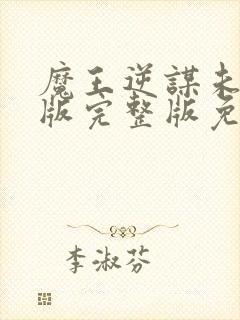 魔王逆謀未
版完整版免
李淑芬